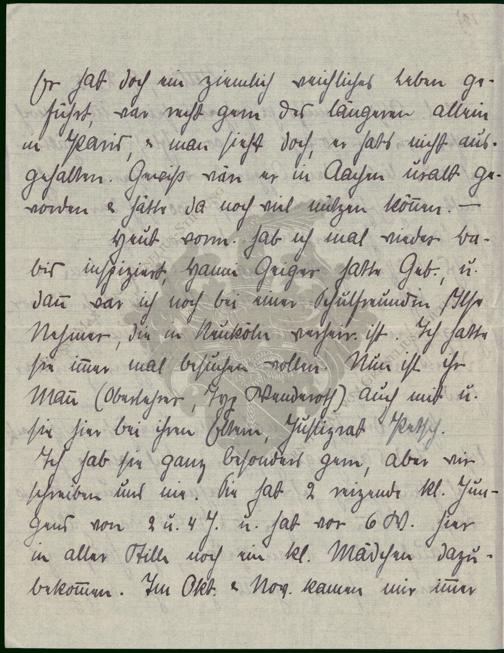 Er hat doch ein ziemlich reichliches Leben ge-
führt, war recht gern des längeren allein
in Paris, & man sieht doch, er hats nicht aus-
gehalten. Gewiß wär er in Aachen uralt ge-
worden & hätte da noch viel nützen können. —
Heut vorm. hab ich mal wieder Ba-
bis inspiziert, Hanne Geiger hatte Geb., u.
dañ war ich noch bei einer Schulfreundin Ilse
Nehmer, die in Neuköln verheir. ist. Ich hatte
sie im̄er mal besuchen wollen. Nun ist ihr
Mañ (Oberlehrer, Typ Wenderoth) auch mit u.
sie hier bei ihren Eltern, Justizrat Petsch.
Ich hab sie ganz besonders gern, aber wir
schreiben uns nie. Sie hat 2 reizende kl. Jun-
gens von 2 u. 4 J. u. hat vor 6 W. hier
in aller Stille noch ein kl. Mädchen dazu-
bekom̄en. Im Okt. & Nov. kamen mir im̄er